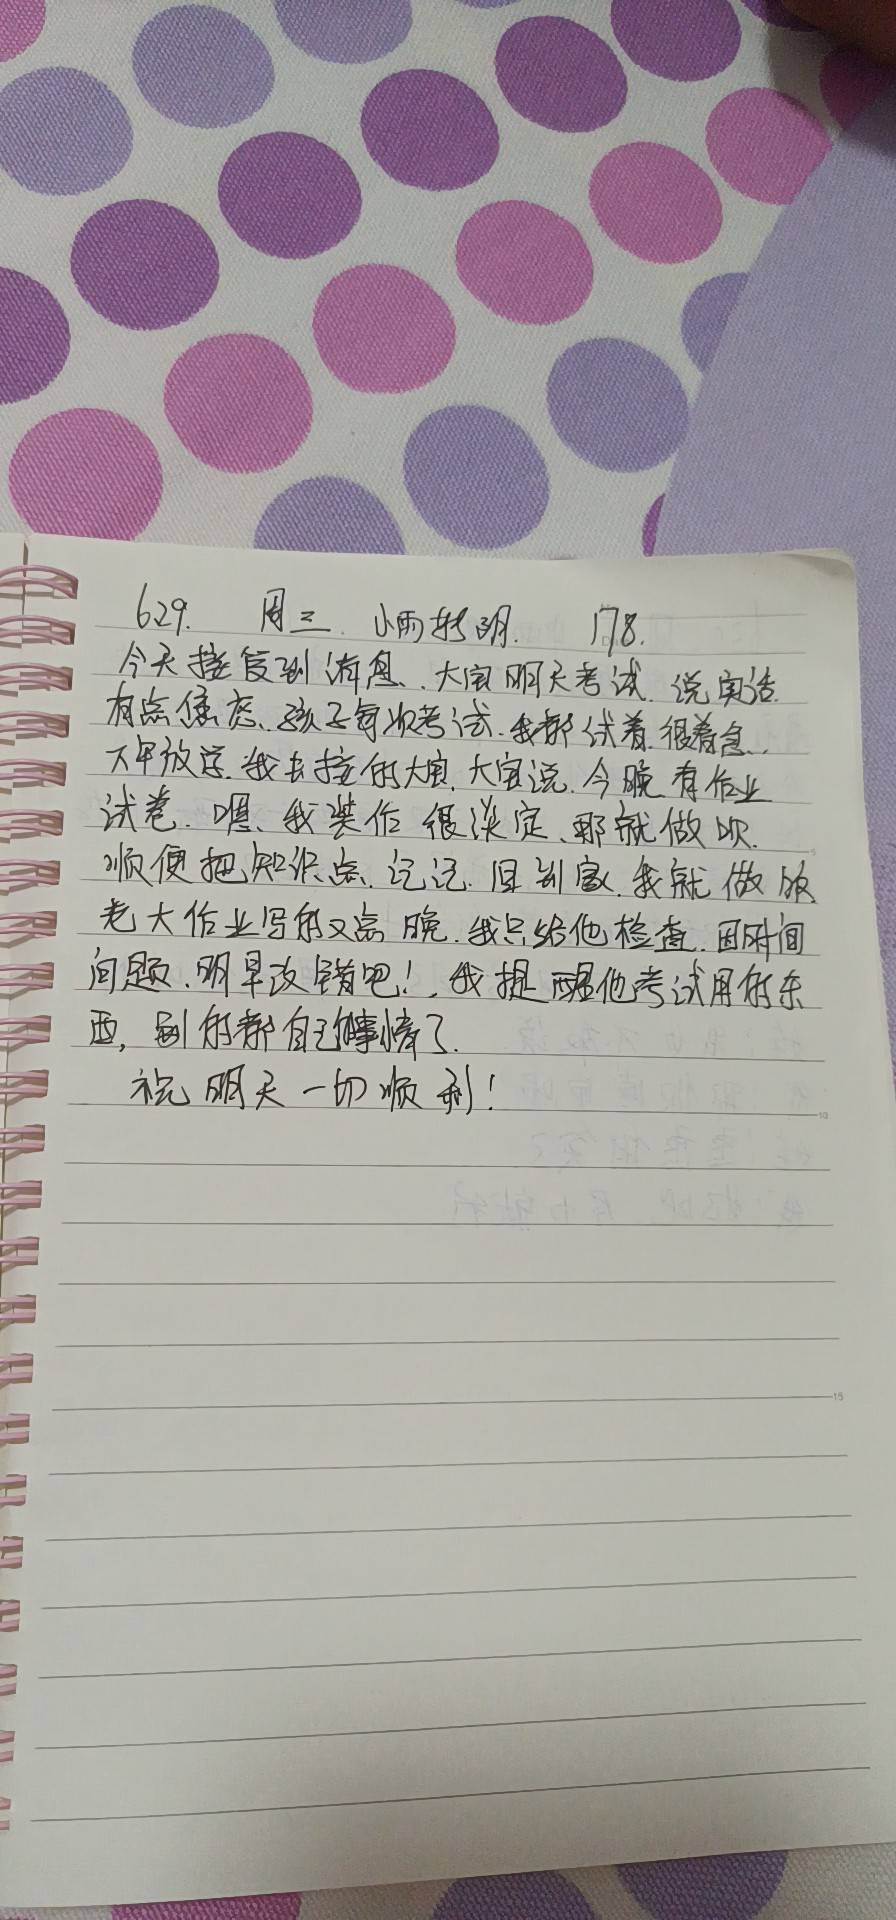 629. 周三. 小雨转阴. 178.
今天接到消息、大宝明天考试.说实话.
有点焦虑、孩子每次考试.我都试着.很着急..
下午放学.我去接的大宝.大宝说.今晚有作业
试卷.嗯、我装作很淡定、那就做呗.
顺便把知识点.记记.回到家.我就做饭
老大作业写的又点晚.我只给他检查.因时间
问题、明早改错吧!.我提醒他考试用的东
西,别的都自己事情了.
祝明天一切顺利!
5
10
15